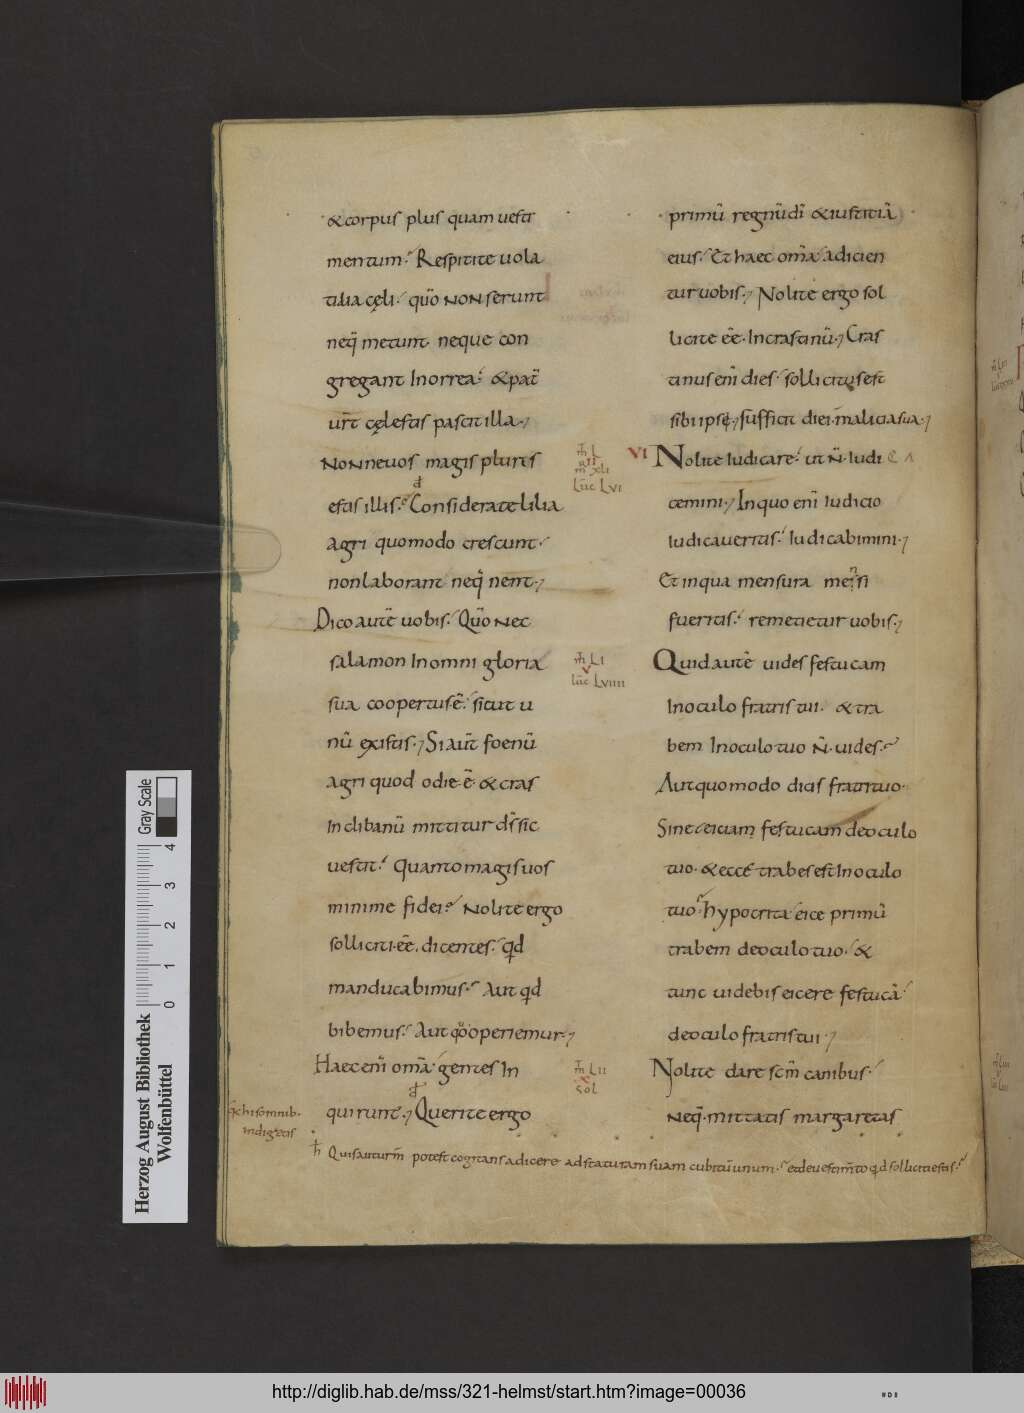 &corpus plus quam uesti
mentum. Respitite uola
tilia cęli. quō non serunt
neq̄ metunt. neque con
gregant In orrea. & pat̄
ur̄t cęlestis pascit illa.
Non neuos magis plures
estis illis. Considerate lilia
agri quomodo crescunt.
non laborant neq̄ nent.
Dico autē uobis. Quō nec
salamon In omni gloria
sua coopertus ē. sicut u
nū ex istis. Si aut̄ foenū
agri quod odie ē. & cras
In clibanū mittitur dr̄ sic
uestit. Quanto magis uos
minime fidei. Nolite ergo
solliciti eē. dicentes. qd
manducabimus. Aut qd
bibemus. Aut q̊ operiemur.
Haec enī omā gentes In
quirunt. Querite ergo
m̄ L
luc LVI
m̄ LI
luc LVIIII
m̄ LII
sol
hisomnib.
indigetis
h̄ Quis auturm̄ potest cogitans adicere ad staturam suam cubitū unum. et de uestim̄to qd solliciti estis.
primū regnū dī & iustitiā
eius. Et haec omā adicien
tur uobis. Nolite ergo sol
licite eē. In crastinū. Cras
tinus enī dies. sollicitus est
sibi ipsę. sufficit diei. malicia sua.
VI
Nolite Iudicare. ut n̄. Iudi
cemini. In quo enī Iudicio
Iudicaueritis. Iudicabimini.
Et in qua mensura mensi
fueritis. remetietur uobis.
Quid autē uides festucam
In oculo fratris tui. & tra
bem In oculo tuo n̄. uides.
Aut quomodo dicis fratri tuo.
Sine eiciam festucam de oculo
tuo. & ecce trabes est In oculo
tuo. hypocrita eice primū
trabem de oculo tuo. &
tunc uidebis eicere festucā
de oculo fratris tui.
Nolite dare scm̄ canibus.
Neq̄. mittatis margaretas
Herzog August Bibliothek
Wolfenbüttel
0 1 2 3 4
Gray Scale
http://diglib.hab.de/mss/321-helmst/start.htm?image=00036